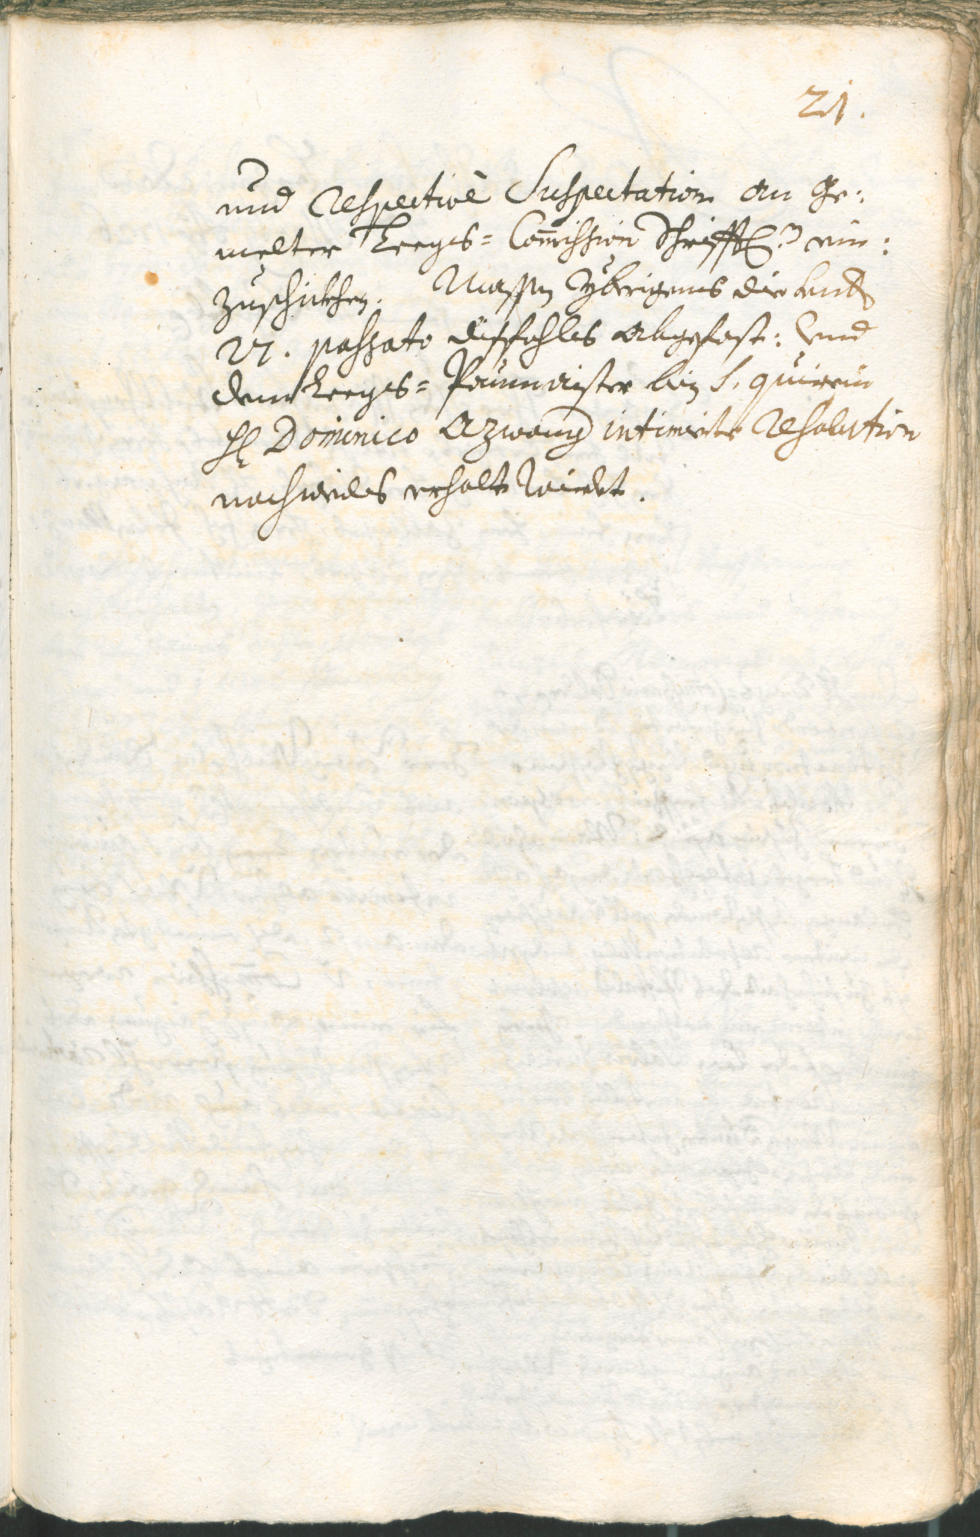 21.
und respectivè Suspectation an Ge:
melter Kriegs= Com̄ission Schrifftl: ein:
zuschickhen. Massen ybrigens die
27. passato disfahls abgefast: und
dem Kriegs= Paumaister bey S. Quirein
H: Dominico Azwang intimirte Resolution
nochmales erhalten wirdet.